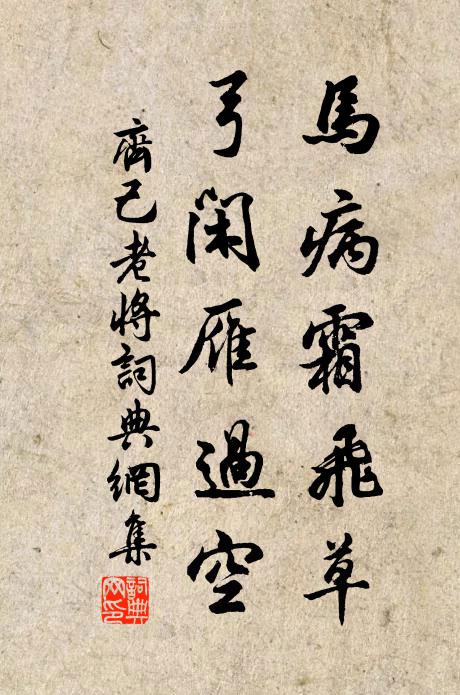 馬病霜飛草
弓閑雁過空
齊己老將詞典網集
詞典網印